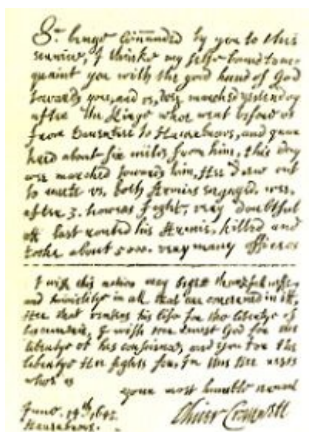 Sr beinge commanded by you to this
service, I thinke my selfe bound to ac
quaint you with the good hand of God
towards you, and us, wee marched yesterday
after the Kinge whoe went before us
from Dauentree to Hauerbrowe, and quar
tered about six miles from him, this day
wee marched towards him, Hee drew out
to meete us, both Armies engaged, wee,
after 3. howers fight, very doubtfull
att last routed his Armie, killed and
tooke about 5000. very many officers
I wish this action may begett thankfullnesse,
and humilitye in all that are concerned in itt,
Hee that venters his life for the libertye of
his countrie, I wish hee trust God for the
libertye of his conscience, and you for the
libertye Hee fights for, In this Hee rests
whoe is
your most humble servant
June. 14th, 1645.
Oliver Cromwell
Hauerbrowe.